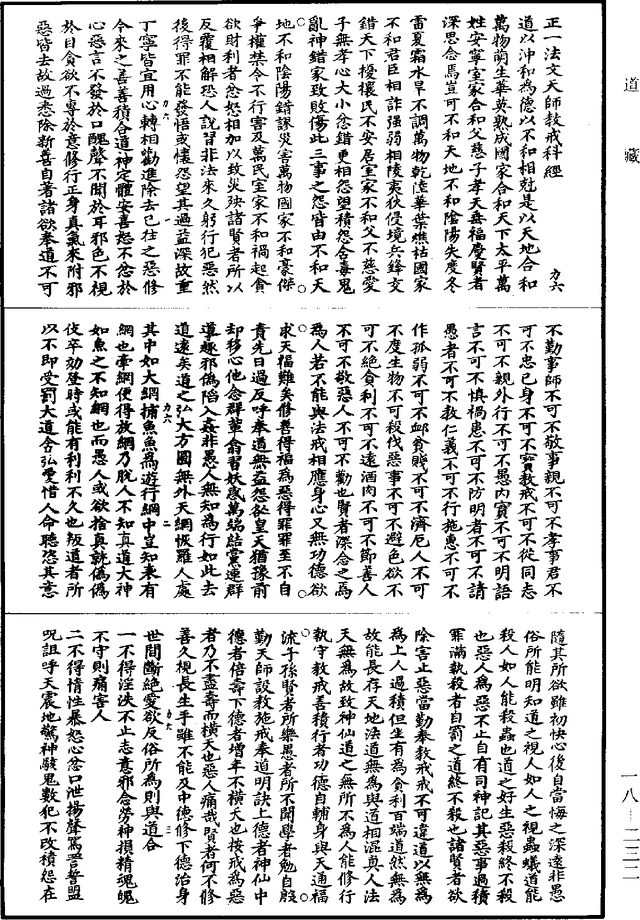 道藏
正一法文天師教戒科經 力六
道以沖和為德以不和相尅是以天地合和
萬物萌生華英熟成國家合和天下太平萬
姓安寧室家合和父慈子孝天垂福慶賢者
深思念焉豈可不和天地不和陰陽失度冬
雷夏霜水旱不調萬物乾陸華葉燋枯國家
不和君臣相詐強弱相陵夷狄侵境兵鋒交
錯天下擾攘民不安居室家不和父不慈愛
子無孝心大小忿錯更相怨望積怨含毒鬼
亂神錯家致敗傷此三事之怨皆由不和天
地不和陰陽錯謬災害萬物國家不和豪傑
爭權禁令不行害及萬民室家不和禍起貪
欲財利者忿怒相加以致災殃諸賢者所以
反覆相解恐人說習非法來久躬行犯惡然
後得罪不能發悟或懷怨望其過益深故重
丁寧皆宜用心轉相勸進除去已往之惡修
今來之善善積合道神定體安喜怒不忿於
心惡言不發於口醜聲不聞於耳邪色不視
於目貪欲不專於意修行正身真氣來附邪
惡皆去故過悉除新善自著諸欲奉道不可
不勤事師不可不敬事親不可不孝事君不
可不忠己身不可不寶教戒不可不從同志
不可不親外行不可不愚內實不可不明語
言不可不慎禍患不可不防明者不可不請
愚者不可不教仁義不可不行施惠不可不
作孤弱不可不卹貧賤不可不濟厄人不可
不度生物不可殺伐惡事不可不避色欲不
可不絕貪利不可不遠酒肉不可不節善人
不可不敬惡人不可不勸也賢者深念之焉
為人若不能與法戒相應身心又無功德欲
求天福難矣修善得福為惡得罪罪至不自
責先日過反呼奉道無益怨訟皇天猶豫前
却移心他念群輩翕習妖惑萬端結黨連群
導趣邪偽陷入姦非愚人無知為行如此去
道遠矣道之弘大方圓無外天網恢羅人處
其中如大網捕魚魚為遊行網中豈知表有
網也牽網便得放網乃脫人不知真道大神
如魚之不知網也而愚人或欲捨真就偽偽
伎卒効登時或能有利利不久也叛道者所
以不即受罰大道含弘愛惜人命聽恣其意
隨其所欲雖初快心後自當悔之深遠非愚
俗所能明知道之視人如人之視蟲蟻道能
殺人如人能殺蟲也道之好生惡殺終不殺
也惡人為惡不止自有司神記其惡事過積
罪滿執殺者自罰之道終不殺也諸賢者欲
除害止惡當勤奉教戒戒不可違道以無為
為上人過積但坐有為貪利百端道然無為
故能長存天地法道無為與道相混真人法
天無為故致神仙道之無所不為人能修行
執守教戒善積行者功德自輔身與天通福
流子孫賢者所樂愚者所不聞學者勉自殷
勤天師設教施戒奉道明訣上德者神仙中
德者倍壽下德者增年不橫夭也按戒為惡
者乃不盡壽而橫夭也惡人痛哉賢者何不修
善久視長生乎雖不能及中德修下德治身
世間斷絕愛欲反俗所為則與道合
一不得淫泆不止志意邪念勞神損精魂魄
不守則痛害人
二不得情性暴怒心忿口泄揚聲罵詈誓盟
呪詛呼天震地驚神駭鬼數犯不改積怨在
一八—二三二